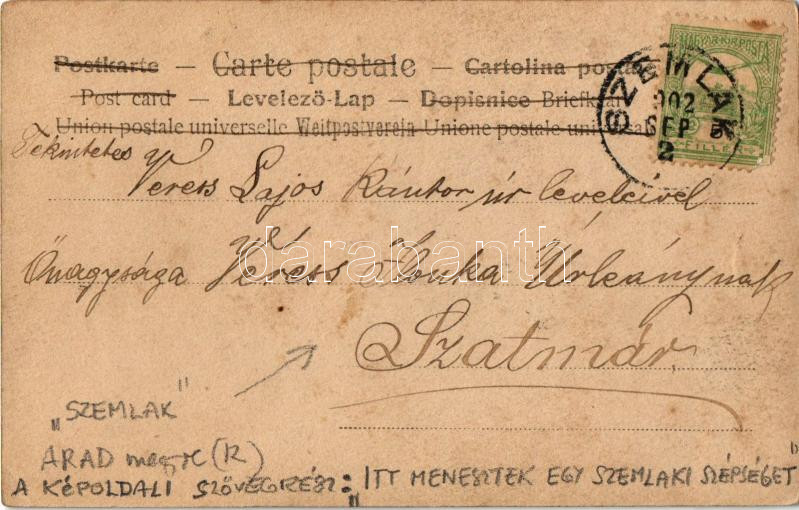 Postkarte – Carte postale – Cartolina postale
Post card – Levelező-Lap – Dopisnice Briefkaart
Union postale universelle Weltpostverein Unione postale universale
MAGYAR KIR. POSTA
FILLÉR
SZEMLAK
902
SEP
2
Tekintetes Veress Lajos Kántor úr leveleivel
Önagysága Veress Ilonka Úrleánynak
Szatmár
darabanth.com
"SZEMLAK"
ARAD megye (R)
A KÉPOLDALI SZÖVEGRÉSZ: "ITT MENESZTEK EGY SZEMLAKI SZÉPSÉGET"